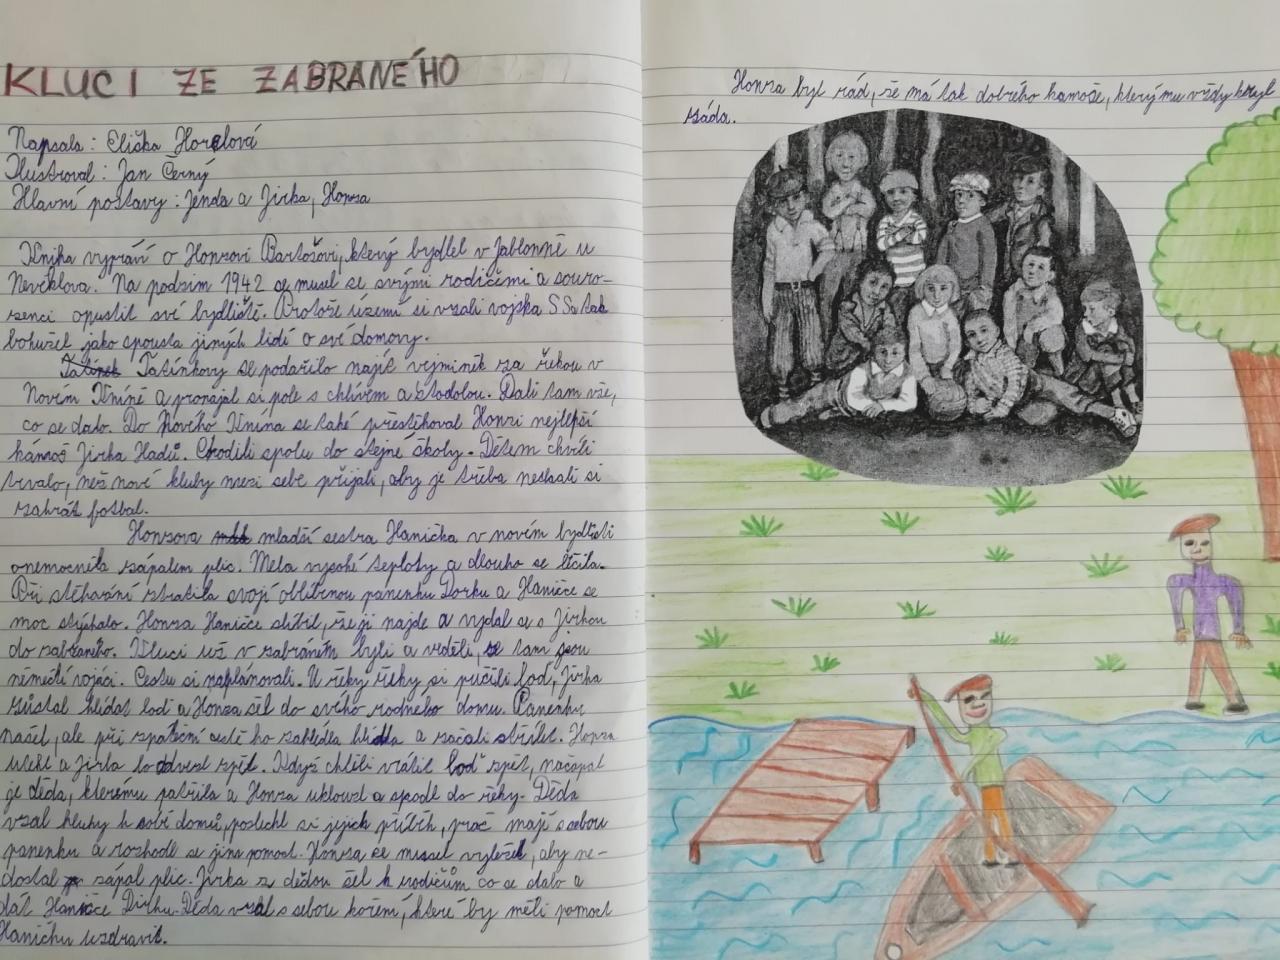 KLUCI ZE ZABRANÉHO
Napsala: Eliška Horelová
Ilustroval: Jan Černý
Hlavní postavy: Jenda a Jirka, Honza
Kniha vypráví o Honzovi Bartošovi, který bydlel v Jablonné u
Neveklova. Na podzim 1942 musel se svými rodičemi a souro-
zenci opustit své bydliště. Protože území si vzali vojska SS a tak
bohužel jako spousta jiných lidí o své domovy.
Tatínek Tatínkovy se podařilo najít vejminěk za řekou v
Novém Kníně a pronajal si pole s chlívem a stodolou. Dali tam vše,
co se dalo. Do Nového Knína se také přestěhoval Honzi nejlepší
kámoš Jirka Hadů. Chodili spolu do stejné školy. Dětem chvíli
trvalo, než nové kluky mezi sebe přijali, aby je třeba nechali si
zahrát fotbal.
Honzova mladší sestra Hanička v novém bydlišti
onemocněla zápalem plic. Měla vysoké teploty a dlouho se léčila.
Při stěhování ztratila svojí oblíbenou panenku Dorku a Haničce se
moc stýskalo. Honza Haničce slíbil, že ji najde a vydal se s Jirkou
do zabraného. Kluci už v zabraném byli a věděli, že tam jsou
němečtí vojáci. Cestu si naplánovali. U řeky řeky si půčili loď, Jirka
zůstal hlídat lodi a Honza šel do svého rodného domu. Panenku
našel, ale při zpáteční cestě ho zahlédla hlídka a začali střílet. Honza
utekl a Jirka ho odvezl zpět. Když chtěli vrátit loď zpět, načapal
je děda, kterému patřila a Honza uklouzl a spadl do řeky. Děda
vzal kluky k sobě domů, poslechl si jejich příběh, proč mají sebou
panenku a rozhodl se jim pomoct. Honza se musel vyležet, aby ne-
dostal zápal plic. Jirka s dědou šel k rodičům co se dalo a
dát Haničce Dorku. Děda vzal s sebou koření, které by měli pomoct
Haničku uzdravit.
Honza byl rád, že má tak dobrého kamoše, který mu vždy kryl
záda.